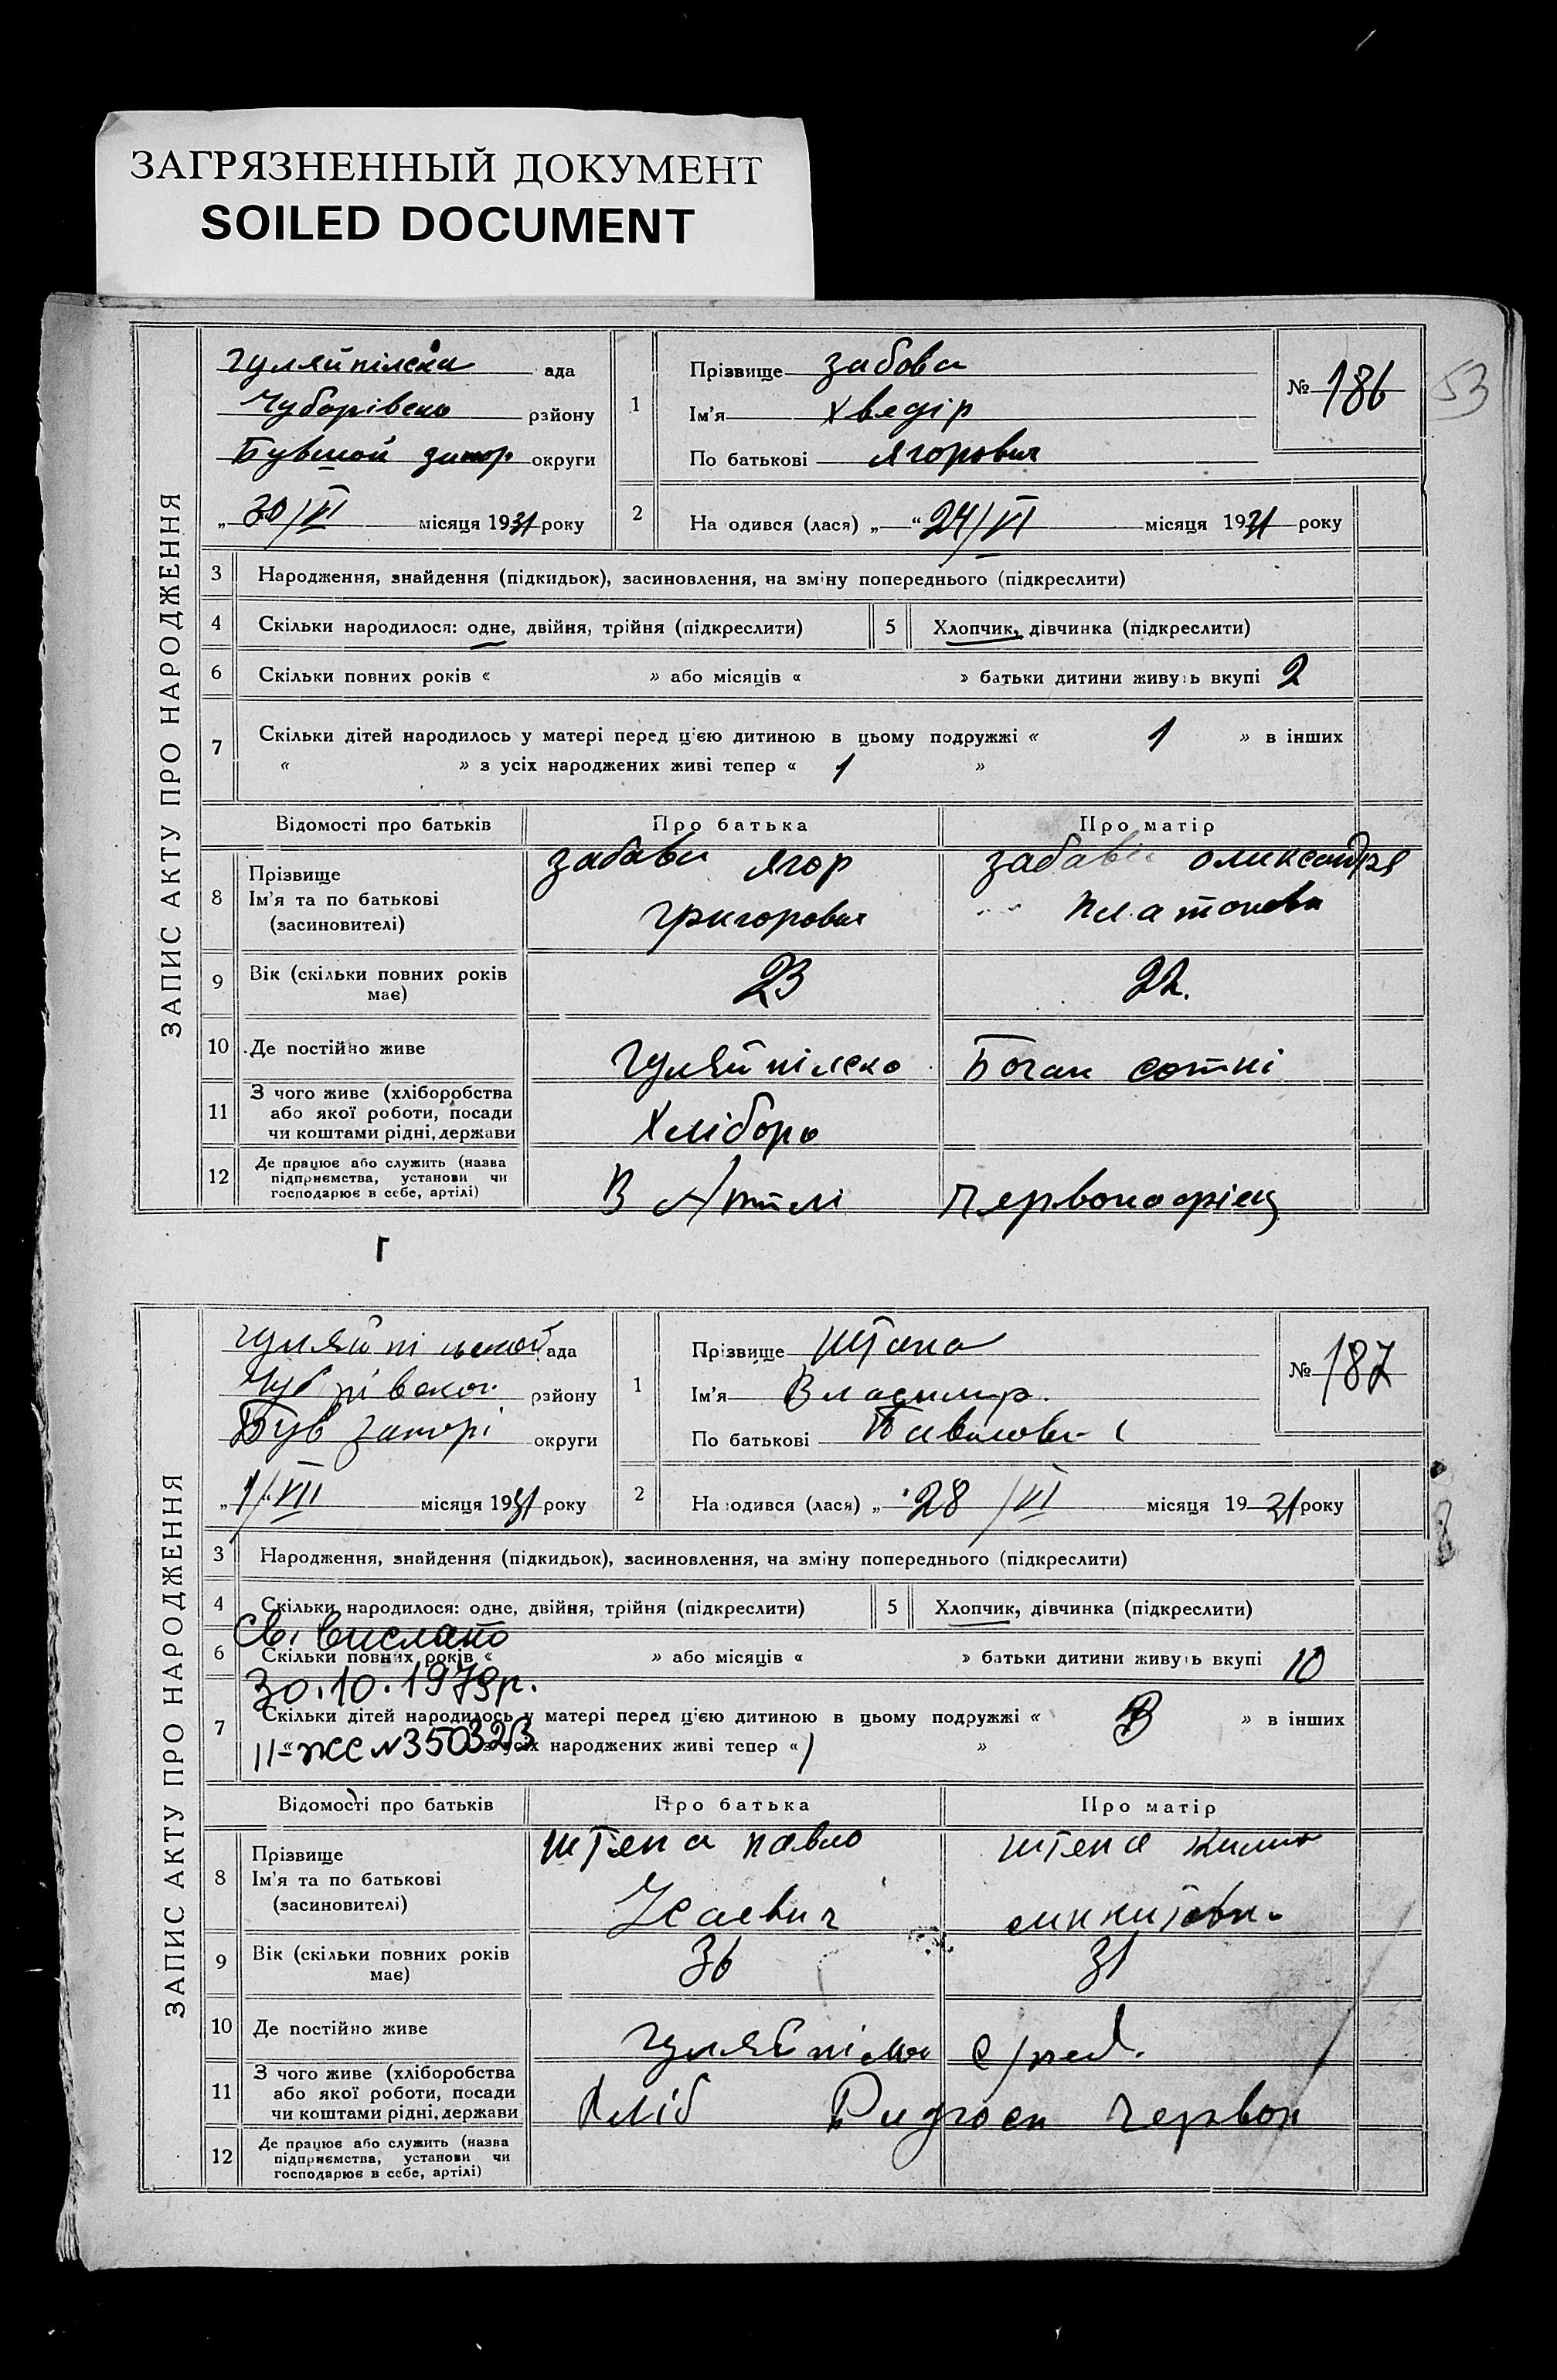 ЗАГРЯЗНЕННЫЙ ДОКУМЕНТ
SOILED DOCUMENT
53
ЗАПИС АКТУ ПРО НАРОДЖЕННЯ
Гуляйпілска ада
Чубарівсько рзйону
Бувшой запор округи
„ 30/VI місяця 1931 року
1 Прізвище забова
Ім'я Хведір
По батькові Ягорович
№ 186
2 На одився (лася) „ “ 24/VI місяця 1931 року
3 Народження, знайдення (підкидьок), засиновлення, на зміну попереднього (підкреслити)
4 Скільки народилося: одне, двійня, трійня (підкреслити) 5 Хлопчик, дівчинка (підкреслити)
6 Скільки повних років « » або місяців « » батьки дитини живуть вкупі 2
7 Скільки дітей народилось у матері перед ц'єю дитиною в цьому подружжі « 1 » в інших
« » з усіх народжених живі тепер « 1 »
Відомості про батьків Про батька Про матір
8 Прізвище
Ім'я та по батькові
(засновителі)
забава Ягор
Григорович
забава олександря
Платонова
9 Вік (скільки повних років
має) 23 22.
10 Де постійно живе Гуляйпілско Боган сотні
11 З чого живе (хліборобства
або якої роботи, посади
чи коштами рідні, держави Хлібороб
12 Де працює або служить (назва
підприємства, установи чи
господарює в себе, артілі) В Артілі
ЗАПИС АКТУ ПРО НАРОДЖЕННЯ
Гуляйпільской ада
рзйону
Був запорі округи
„ 1/VII місяця 1931 року
1 Прізвище Штапа
Ім'я Владимир.
По батькові Павлович
№ 187
2 На одився (лася) „ 28/VI місяця 1931 року
3 Народження, знайдення (підкидьок), засиновлення, на зміну попереднього (підкреслити)
4 Скільки народилося: одне, двійня, трійня (підкреслити) 5 Хлопчик, дівчинка (підкреслити)
Св. вислано
6 Скільки повних років « » або місяців « » батьки дитини живуть вкупі 10
30.10.1979р.
7 Скільки дітей народилось у матері перед ц'єю дитиною в цьому подружжі « 3 » в інших
II-ЖС №350323 з усіх народжених живі тепер « »
Відомості про батьків Про батька Про матір
8 Прізвище
Ім'я та по батькові
(засновителі)
Штепа павло
Исаевич
Штепа
микитовн.
9 Вік (скільки повних років
має) 36 31
10 Де постійно живе Гуляйпілля
11 З чого живе (хліборобства
або якої роботи, посади
чи коштами рідні, держави Хліб Червон
12 Де працює або служить (назва
підприємства, установи чи
господарює в себе, артілі)